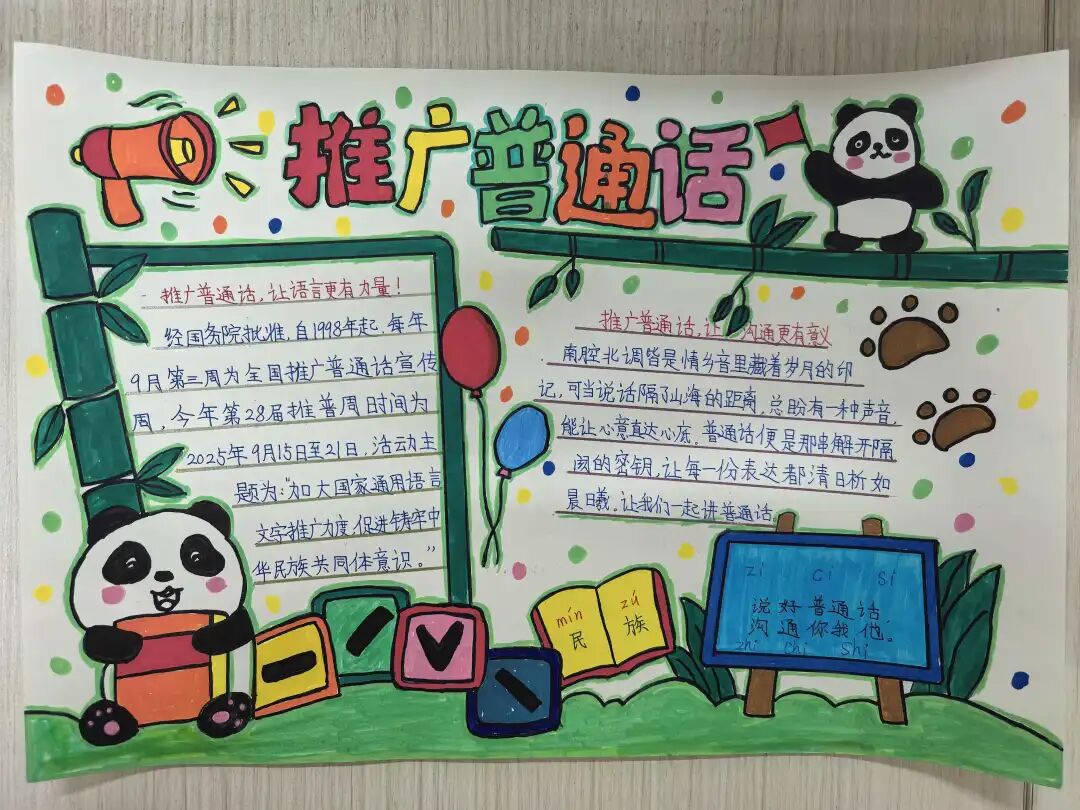 推广普通话
推广普通话,让语言更有力量!
经国务院批准,自1998年起,每年
9月第三周为全国推广普通话宣传
周,今年第28届推普周时间为
2025年9月15日至21日,活动主
题为:“加大国家通用语言
文字推广力度,促进铸牢中
华民族共同体意识。”
推广普通话,让沟通更有意义
南腔北调皆是情乡音里藏着岁月的印
记,可当说话隔了山海的距离,总盼有一种声音,
能让心意直达心底。普通话便是那串解开隔
阂的密钥,让每一份表达都清晰如
晨曦。让我们一起讲普通话
mín zú
民 族
zi ci si
说好普通话
沟通你我他
zhi chi shi